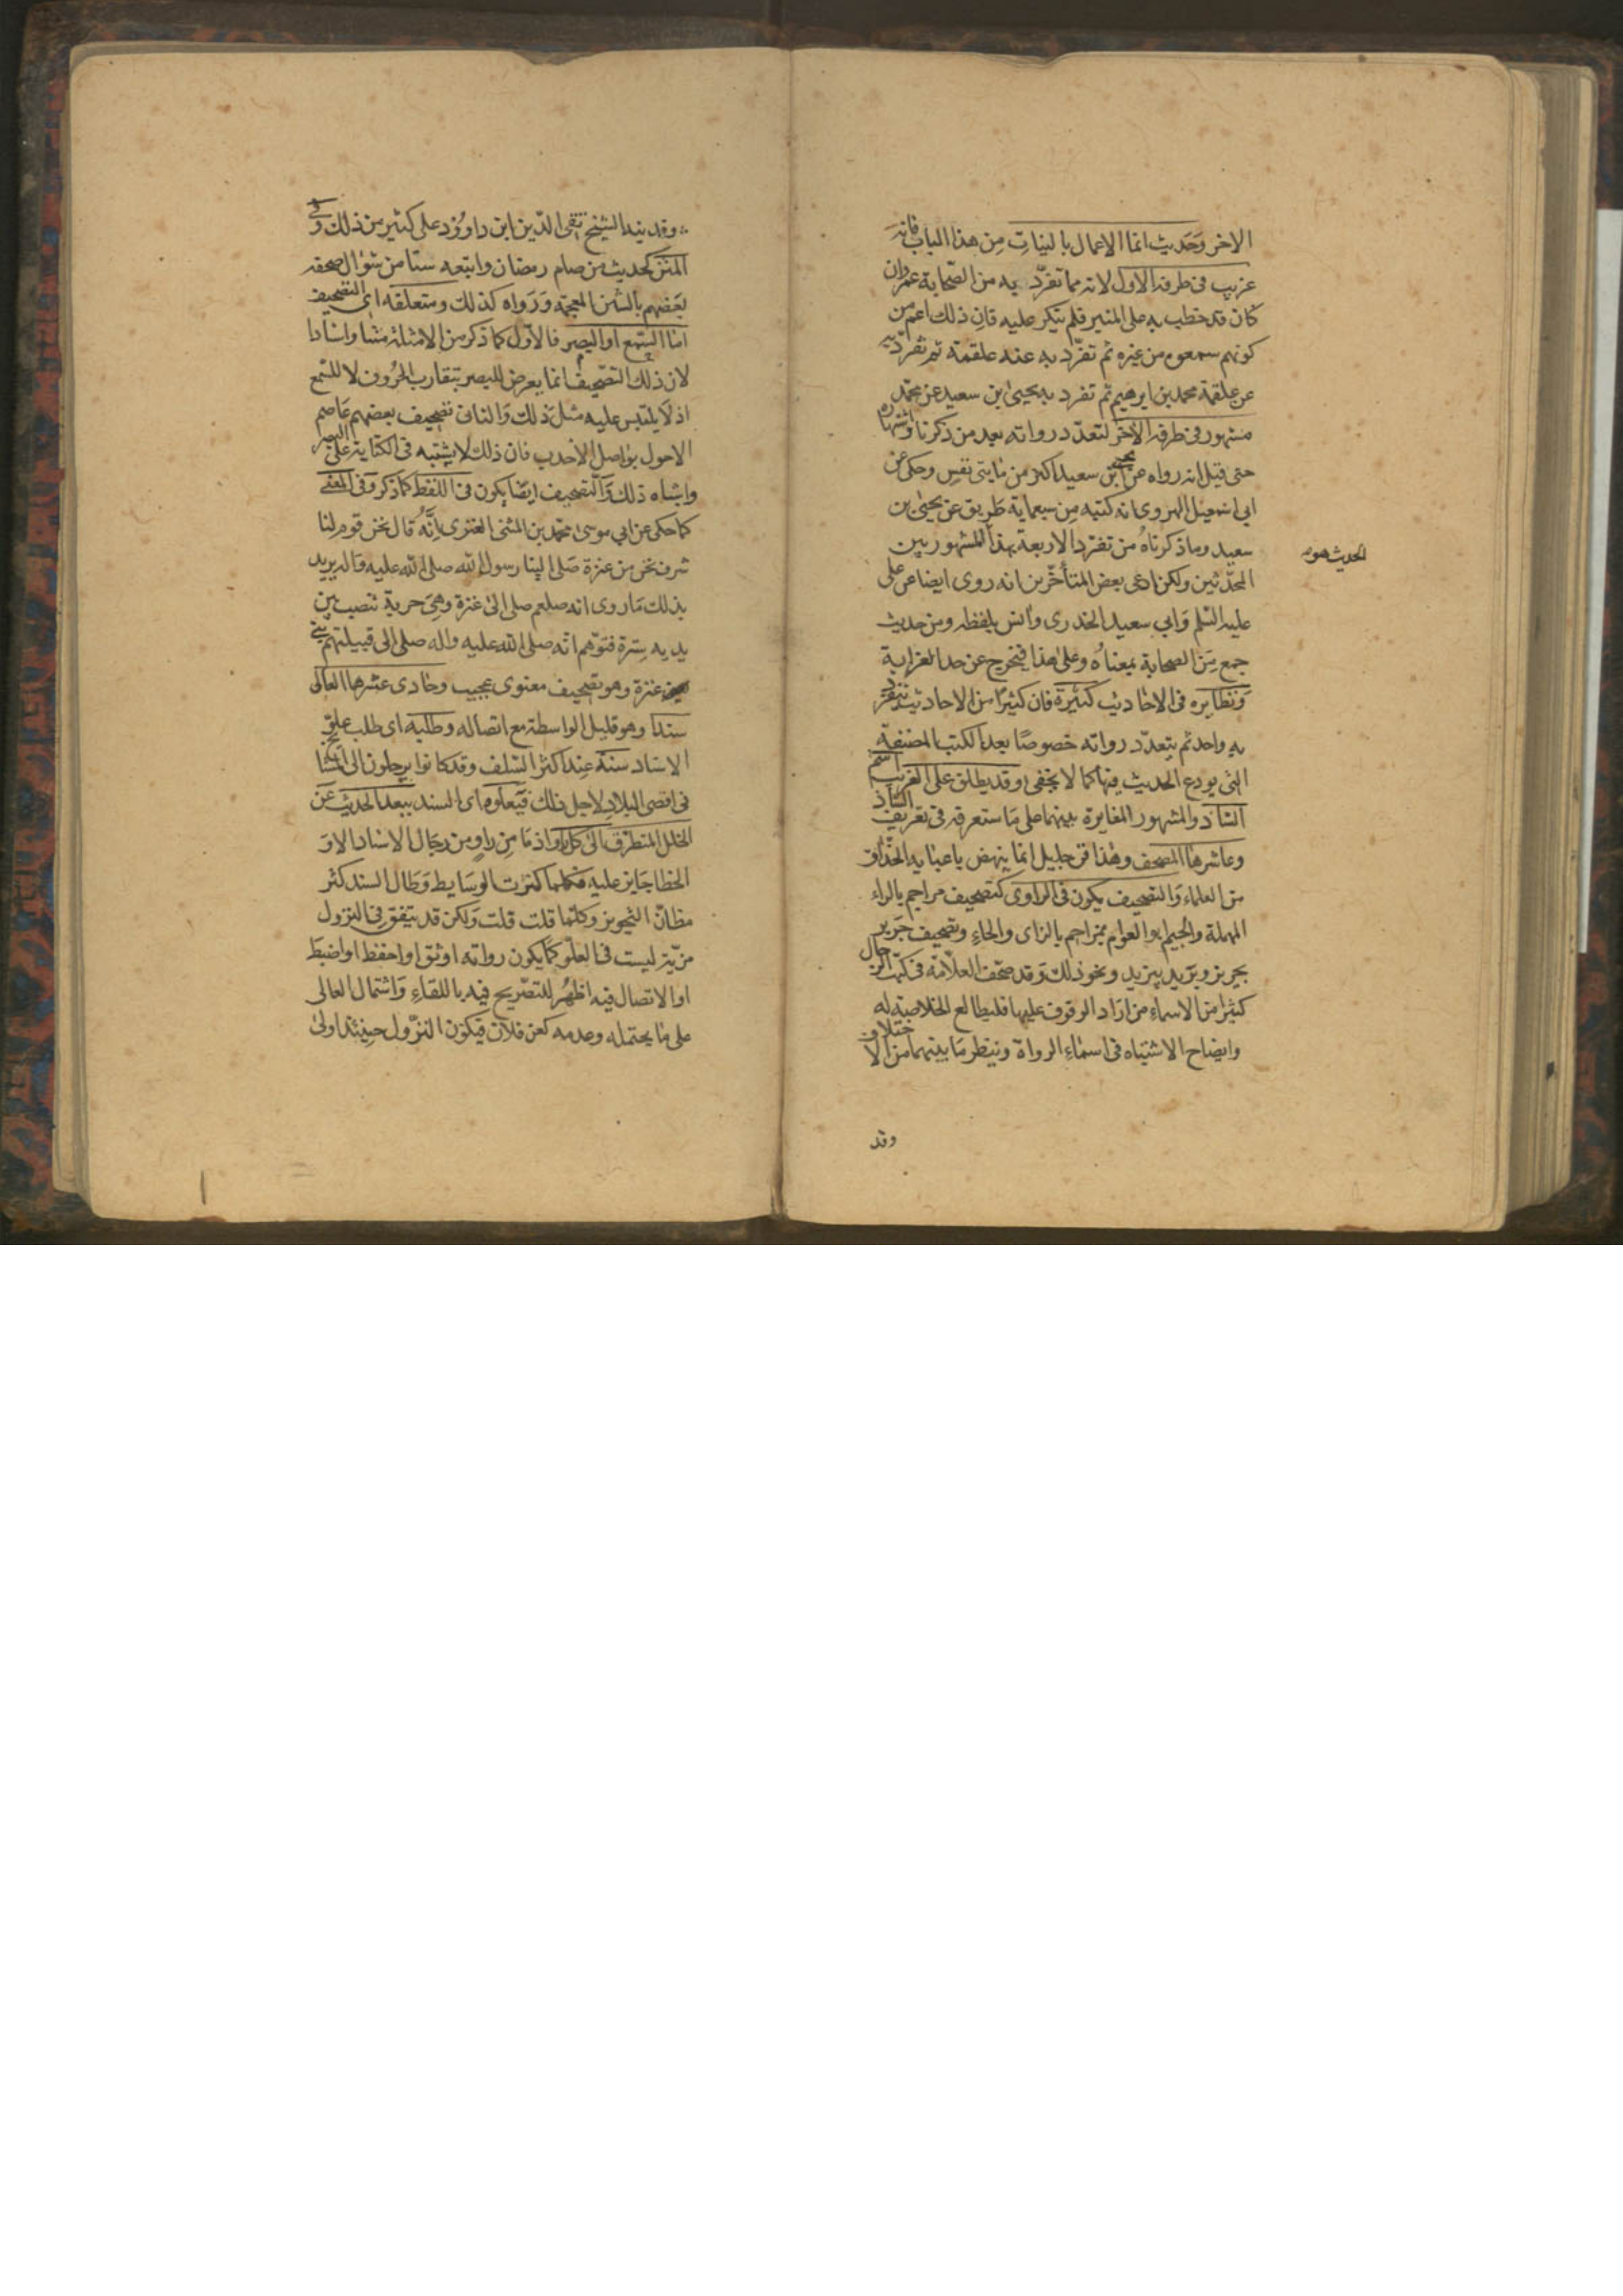 الاخر وَحَديث انما الاعمال بالنيات مِن هذا الباب فانه
غريب فى طرفه الاول لانه مما تفرّد به من الصّحابة عمر وان
كان قد خطب به على المنبر فلم ينكر عليه فان ذلك اعم من
كونهم سمعوه من غيره ثم تفرّد به عنه علقمة ثم تفرد به
عن علقمة محمد بن ابرهيم ثم تفرد به يحيى بن سعيد عن محمّد
مشهور فى طرفه الاخر لتعدّد رواته بعد من ذكرنا واشتهاره
حتى قيل انه رواه عن يحيى ابن سعيد اكثر من مايتى نفس وحكى عن
ابى اسمعيل الهروى انه كتبه مِن سبعماية طريق عن يحيى بن
سعيد وما ذكرناهُ من تفرّد الاربعة بهذا المشهور بين
الحديث هو
المحدّثين ولكن ادعى بعض المتأخّرين انه روى ايضا عن على
عليه السّلم وَابي سعيد الخدرى وأنس بلفظه ومن حديث
جمع مِن الصحابة بمعناه وعلى هذا فيخرج عن حد الغرابة
وَنظايره فى الاحاديث كثيرة فان كثيرًا من الاحاديث تنفرد
به واحد ثم يتعدّد رواته خصوصًا بعد الكتب المصنفة
التى يودع الحديث فيها كما لا يخفى وقد يطلق على الغريب اسم
الشاذ والمشهور المغايرة بينهما على مَا ستعرفه فى تعريف الشاذ
وعاشرها المصحف وهٰذا فن جليل انما ينهض باعبايه الحذّاق
من العلماء وَالتصحيف يكون فى الراوى كتصحيف مراجم بالراء
المهملة والجيم ابو العوام بمزاحم بالزاى والحاءِ وتصحيف جَرير
بحريز وبريد بيزيد ونحو ذلك وَقد صحّف العلّامة فى كتب الرجال
كثيرا من الاسماءِ من اراد الوقوف عليها فليطالع الخلاصة له
وايضاح الاشتباه فى اسماءِ الرواة ولينظر مَا بينهما من الاختلاف
وقد
وقد نبه الشيخ تقى الدّين ابن داوُد على كثير من ذلك وفى
المتن كحديث من صام رمضان واتبعه ستا من شوال صحفه
بعضهم بالشين المعجمة وَرَواه كذلك ومتعلقه اى التصحيف
امّا السّمع او البصر فالاول كما ذكر من الامثلة متنا واسنادا
لان ذلك التصحيف انما يعرض للبصر بتقارب الحُروف لا للسّمع
اذ لَا يلتبس عليه مثل ذلك وَالثانى تصحيف بعضهم عَاصم
الاحول بواصل الاحدب فان ذلك لا يشتبه فى الكتابة على البصر
واشباه ذلك وَالتصحيف ايضًا يكون فى اللفظ كما ذكر وَفى المعنى
كما حكى عن ابي موسى محمّد بن المثنى العنزى انّهُ قال نحن قوم لنا
شرف نحن من عنزة صَلى الينا رسول الله صلى الله عليه واله يريد
بذلك مَا روى انه صلعم صلى الى عنزة وهِىَ حربة تنصب بين
يديه سترة فتوّهم انّه صلى الله عليه واله صلى الى قبيلتهم بنى
عنزة وهو تصحيف معنوى عجيب وحادى عشرها العالى
سندا وهو قليل الواسطة مع اتصاله وطلبه اى طلب علوّ
الاسناد سنة عِند اكثر السّلف وقد كانوا يرحلون الى المشايخ
فى اقصى البلاد لاجل ذلك فبعلوه اى السند يبعد الحديث عن
الخلل المتطرّق الى كل راو اذ مَا مِن راوٍ من رجَال الاسناد الا وَ
الخطا جَايز عليه فكلما كثرت الوسَايط وَطال السند كثر
مظانّ التجويز وكلّما قلت قلت وَلكن قد يتفق فِى النزول
مزيّة ليست فى العلّو كما يكون رواته اوثق او احفظ او اضبط
او الاتصال فيه اظهر للتصريح فيه باللقاءِ وَاشتمال العالى
على مَا يحتمله وعدمه كعن فلان فيكون النزّول حينئذ اولى